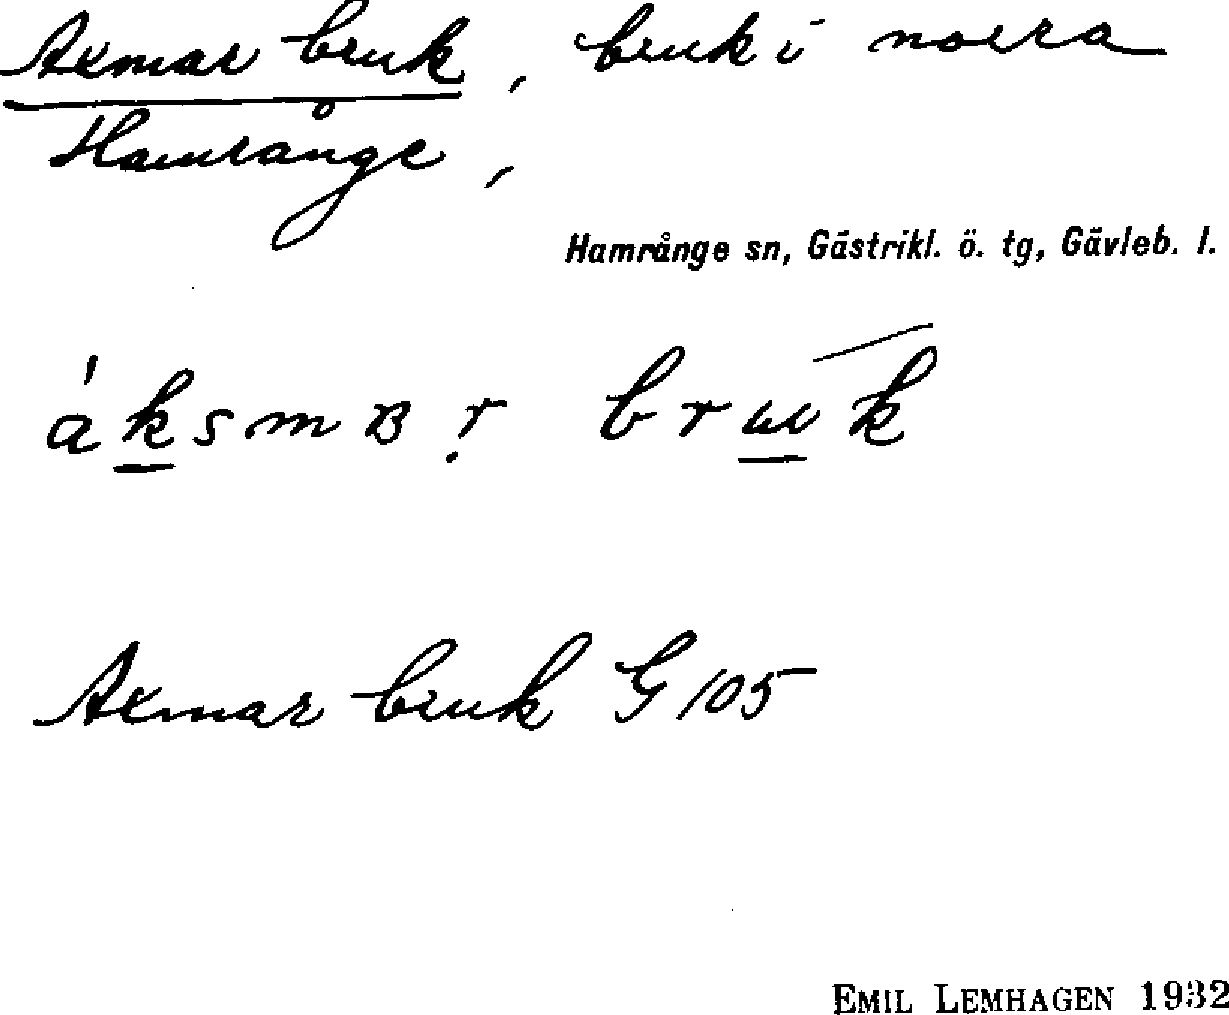 Axmar bruk, bruk i norra
Hamrånge,
Hamrånge sn, Gästrikl. ö. tg, Gävleb. l.
áksmʙṛ brɯk
Axmar bruk G 105
EMIL LEMHAGEN 1932